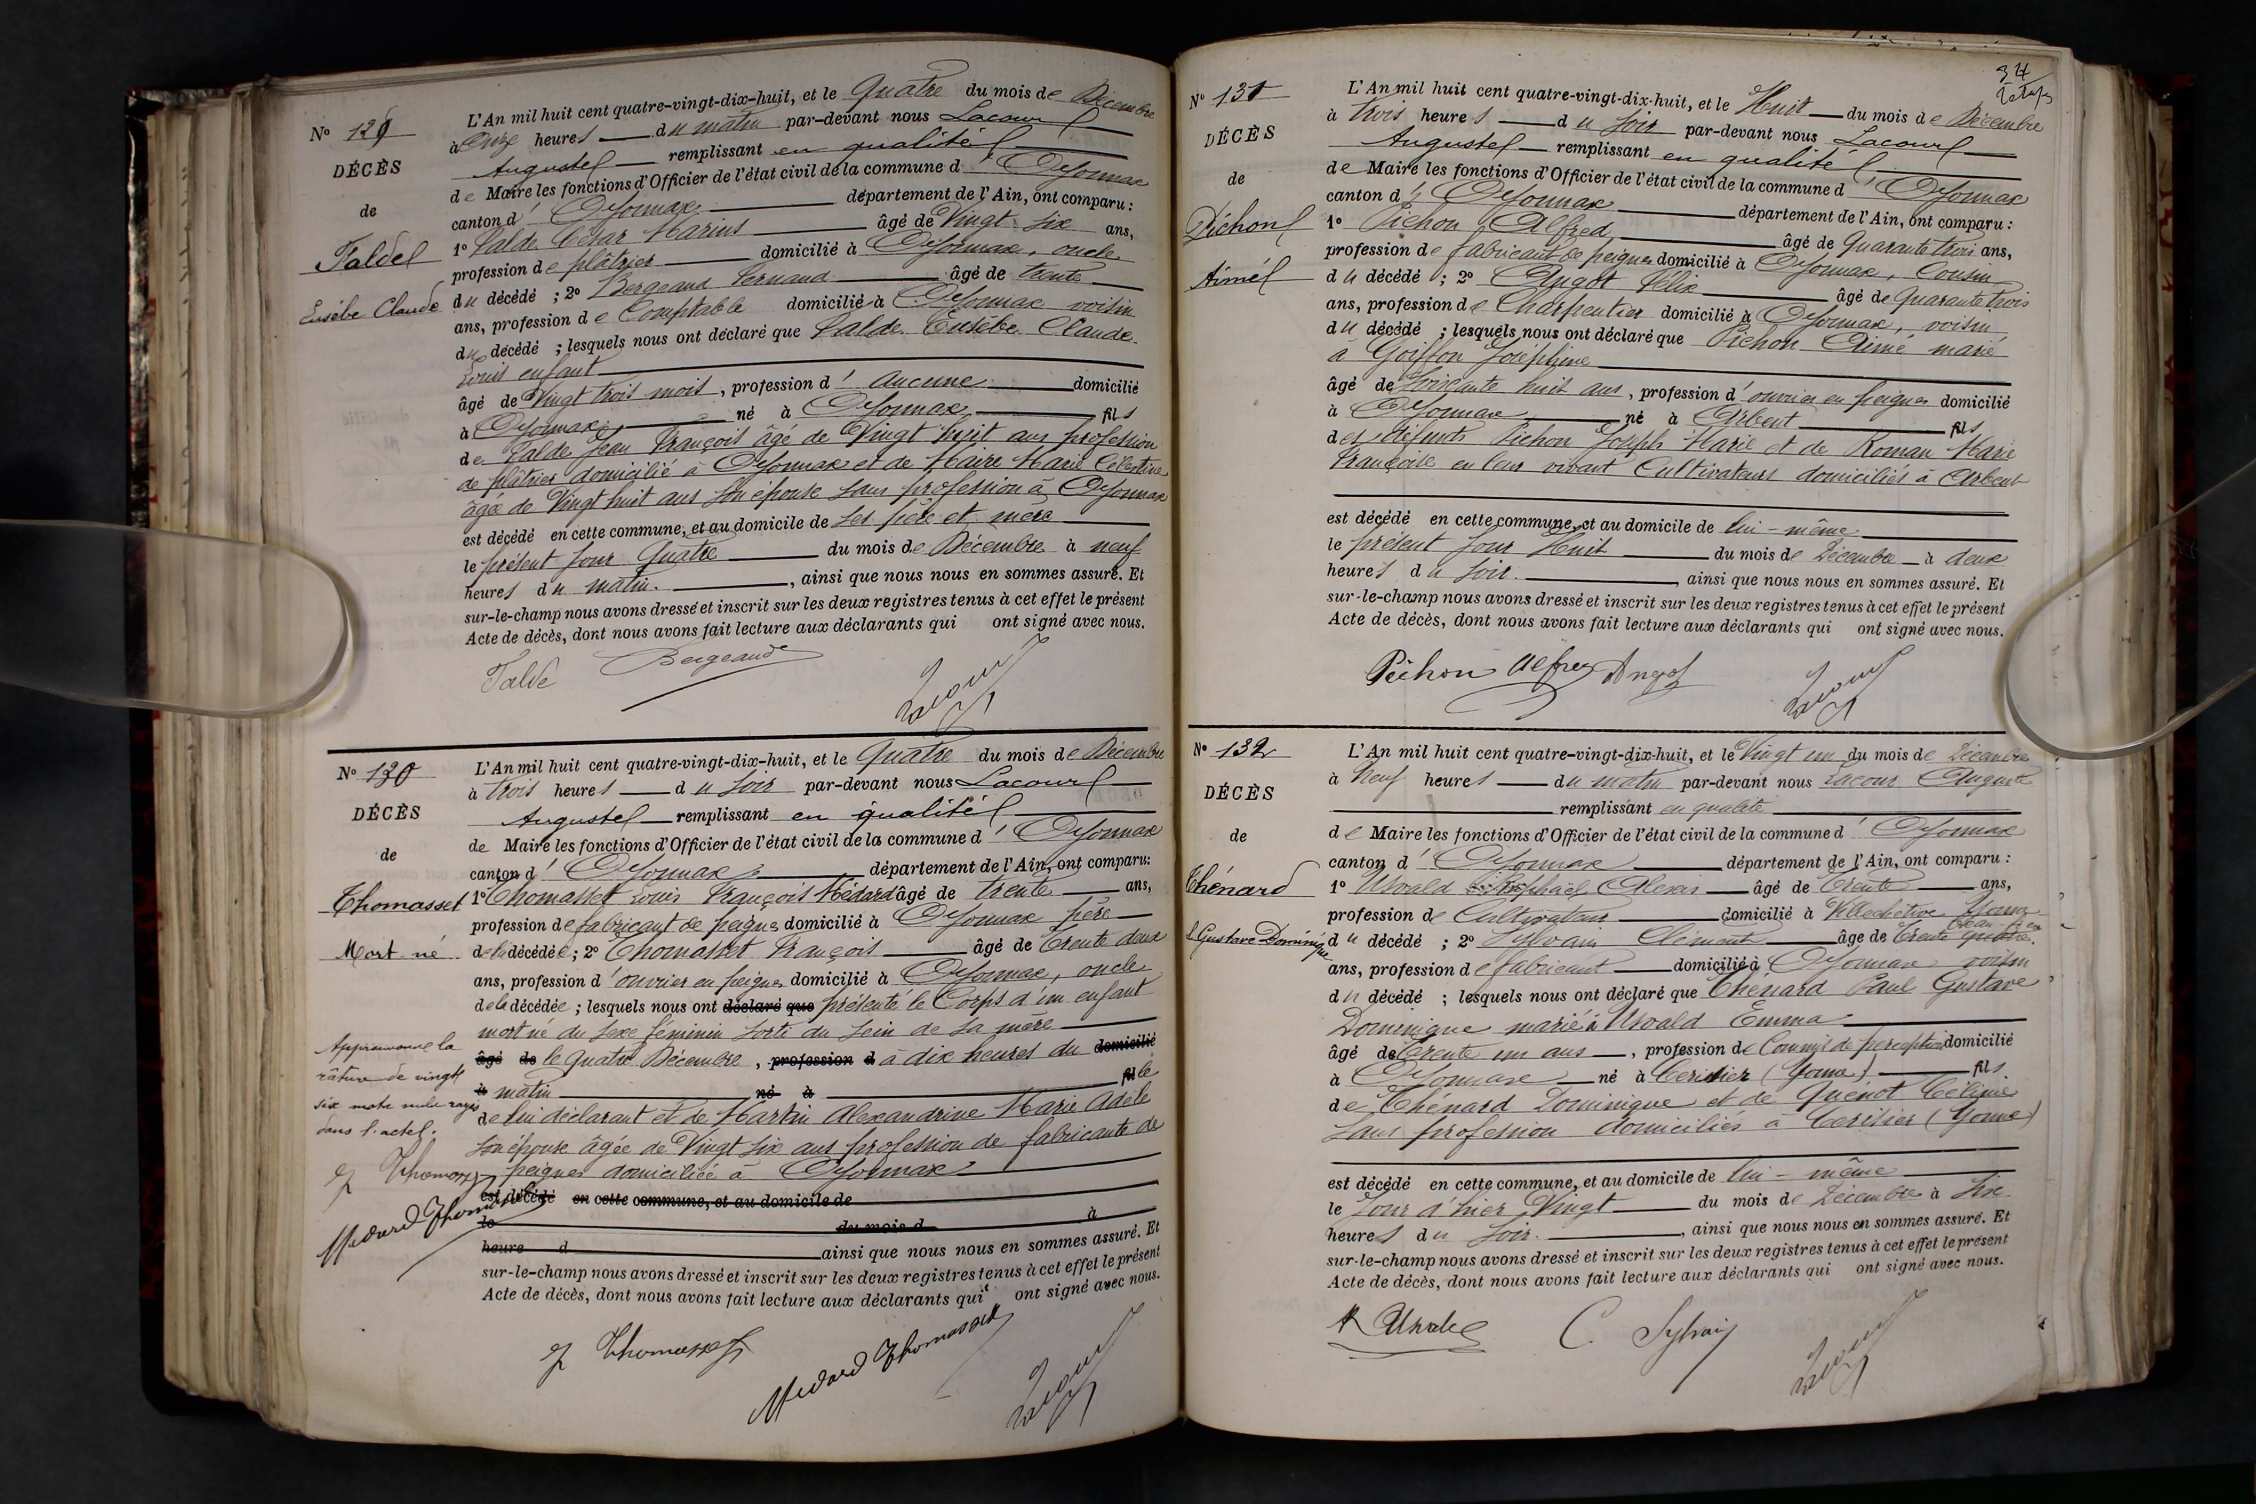 N° 129
DÉCÈS
de
Falde
Eusèbe Claude
L'An mil huit cent quatre-vingt-dix-huit, et le Quatre du mois de Décembre
à Onze heures du matin par-devant nous Lacour
Auguste remplissant en qualité
de Maire les fonctions d'Officier de l'état civil de la commune d' Oyonnax
canton d' Oyonnax département de l'Ain, ont comparu :
1° Falde César Marius âgé de Vingt six ans,
profession de plâtrier domicilié à Oyonnax, oncle
du décédé ; 2° Bergeaud Fernand âgé de trente
ans, profession de Comptable domicilié à Oyonnax voisin
du décédé ; lesquels nous ont déclaré que Falde Eusèbe Claude
Louis enfant
âgé de Vingt trois mois, profession d' aucune domicilié
à Oyonnax né à Oyonnax fils
de Falde Jean François âgé de Vingt huit ans profession
de plâtrier domicilié à Oyonnax et de Maire Marie Célestine
âgée de Vingt huit ans son épouse sans profession à Oyonnax
est décédé en cette commune, et au domicile de ses père et mère
le présent jour Quatre du mois de Décembre à neuf
heures du matin, ainsi que nous nous en sommes assuré. Et
sur-le-champ nous avons dressé et inscrit sur les deux registres tenus à cet effet le présent
Acte de décès, dont nous avons fait lecture aux déclarants qui ont signé avec nous.
Falde Bergeaud Lacour
N° 130
DÉCÈS
de
Thomasset
Mort-né
L'An mil huit cent quatre-vingt-dix-huit, et le Quatre du mois de Décembre
à trois heures du soir par-devant nous Lacour
Auguste remplissant en qualité
de Maire les fonctions d'Officier de l'état civil de la commune d' Oyonnax
canton d' Oyonnax département de l'Ain, ont comparu :
1° Thomasset Louis François Médard âgé de trente ans,
profession de fabricant de peignes domicilié à Oyonnax père
de la décédée ; 2° Thomasset François âgé de Trente deux
ans, profession d'ouvrier en peignes domicilié à Oyonnax, oncle
de la décédée ; lesquels nous ont déclaré que présenté le Corps d'un enfant
mort né du sexe féminin sorti du sein de sa mère
âgé de le Quatre Décembre, profession d à dix heures du domicilié
à matin né à fille
de lui déclarant et de Martin Alexandrine Marie Adèle
son épouse âgée de Vingt six ans profession de fabricante de
peignes domiciliée à Oyonnax
est décédé en cette commune, et au domicile de
le du mois d à
heure d ainsi que nous nous en sommes assuré. Et
sur-le-champ nous avons dressé et inscrit sur les deux registres tenus à cet effet le présent
Acte de décès, dont nous avons fait lecture aux déclarants qui ont signé avec nous.
Approuvons la
râture de vingt
six mots nuls rayés
dans l'acte.
F Thomasset
Médard Thomasset
F Thomasset Médard Thomasset Lacour
34
N° 131
DÉCÈS
de
Pichon
Aimé
L'An mil huit cent quatre-vingt-dix-huit, et le Huit du mois de Décembre
à trois heures du soir par-devant nous Lacour
Auguste remplissant en qualité
de Maire les fonctions d'Officier de l'état civil de la commune d' Oyonnax
canton d' Oyonnax département de l'Ain, ont comparu :
1° Pichon Alfred âgé de Quarante trois ans,
profession de fabricant de peignes domicilié à Oyonnax, Cousin
du décédé ; 2° Angot Félix âgé de Quarante trois
ans, profession de Charpentier domicilié à Oyonnax, voisin
du décédé ; lesquels nous ont déclaré que Pichon Aimé marié
à Goiffon Joséphine
âgé de Soixante huit ans, profession d'ouvrier en peignes domicilié
à Oyonnax né à Arbent fils
des défunts Pichon Joseph Marie et de Roman Marie
Françoise en leur vivant Cultivateurs domiciliés à Arbent
est décédé en cette commune, et au domicile de lui-même
le présent jour Huit du mois de Décembre à deux
heures du soir, ainsi que nous nous en sommes assuré. Et
sur-le-champ nous avons dressé et inscrit sur les deux registres tenus à cet effet le présent
Acte de décès, dont nous avons fait lecture aux déclarants qui ont signé avec nous.
Pichon Alfred Angot Lacour
N° 132
DÉCÈS
de
Thénard
P. Gustave Dominique
L'An mil huit cent quatre-vingt-dix-huit, et le Vingt un du mois de Décembre
à Neuf heures du matin par-devant nous Lacour Auguste
remplissant en qualité
de Maire les fonctions d'Officier de l'état civil de la commune d' Oyonnax
canton d' Oyonnax département de l'Ain, ont comparu :
1° Usvald Raphaël Alexis âgé de Trente ans,
profession de Cultivateur domicilié à Villechétive Yonne
beau frère
du décédé ; 2° Sylvain Clément âgé de Trente quatre
ans, profession de fabricant domicilié à Oyonnax voisin
du décédé ; lesquels nous ont déclaré que Thénard Paul Gustave
Dominique marié à Usvald Emma
âgé de Trente un ans, profession de Commis de perception domicilié
à Oyonnax né à Cerisier (Yonne) fils
de Thénard Dominique et de Quénot Céline
sans profession domiciliés à Cerisier (Yonne)
est décédé en cette commune, et au domicile de lui-même
le Jour d'hier Vingt du mois de Décembre à Six
heures du soir, ainsi que nous nous en sommes assuré. Et
sur-le-champ nous avons dressé et inscrit sur les deux registres tenus à cet effet le présent
Acte de décès, dont nous avons fait lecture aux déclarants qui ont signé avec nous.
C. Sylvain Lacour